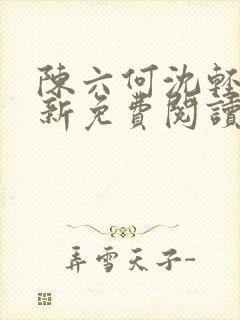 陳六何沈輕
新免費閱讀
弄雪天子-